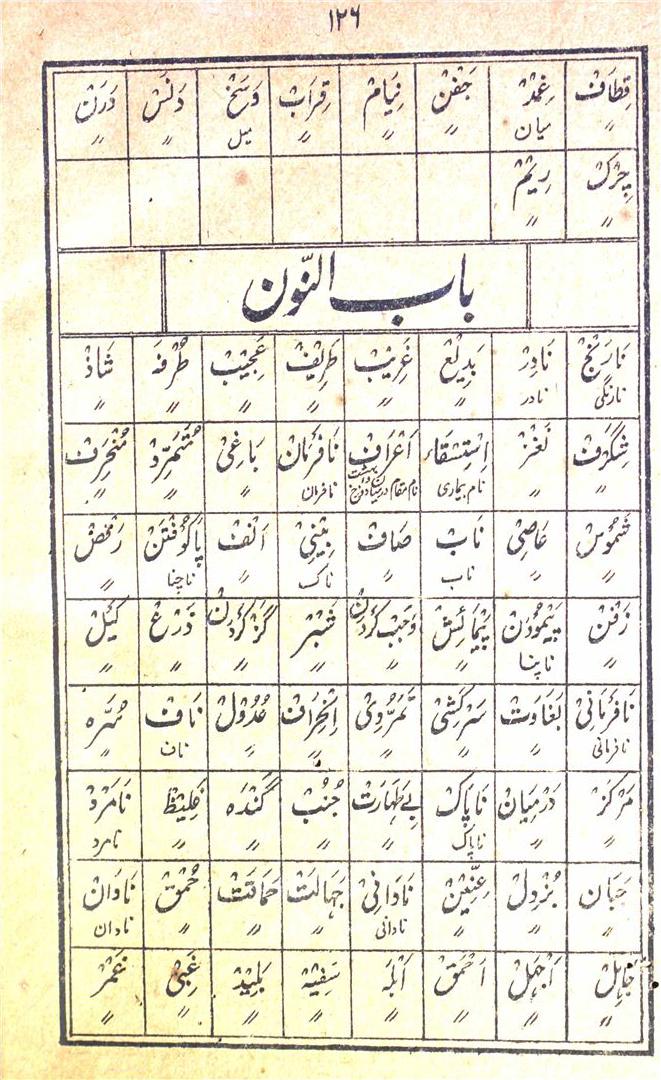 ۱۲۶
قِطَاف غِمْد جَفْن نِیَام قِرَاب وَسَخ دَنَس دَرَن
〃 میان 〃 〃 〃 میل 〃 〃
چِرْک رِیْم
〃 〃
باب النّون
نَارَنْج نَادِر بَدِیْع غَرِیْب ظَرِیْف عَجِیْب طُرْفَہ شَاذْ
نارنگی نادر 〃 〃 〃 〃 〃 〃
شِگَرْف نَغْز اِسْتِسْقَاء اَعْرَاف نَافَرْمَان بَاغِیْ مُتَمَرِّد مُنْحَرِف
〃 〃 نام بیماری نام مقام درمیان دوزخ و بہشت نافرمان 〃 〃 〃
شَمُوْس عَاصِیْ نَاب صَاف بِیْنِیْ اَنْف پَاکُوْفْتَنْ رَقْص
〃 〃 ناب 〃 ناک 〃 ناچنا 〃
زَفْن پَیْمُوْدَن پَیْمَائِش وَجَب کَرْدَن شَبْر گَزْ کَرْدَن ذَرْع کَیْل
〃 ناپنا 〃 〃 〃 〃 〃 〃
نَافَرْمَانِی بَغَاوَت سَرْکَشِی تَمَرُّدِی اِنْحِرَاف عُدُوْل نَاف سُرَّہ
نافرمانی 〃 〃 〃 〃 〃 ناف 〃
مَرْکَز دَرْمِیَان نَاپَاک بے طَہَارَت جُنُب گَنْدَہ غَلِیْظ نَامَرْد
〃 〃 ناپاک 〃 〃 〃 〃 نامرد
جَبَان بُزْدِل عِنِّیْن نَادَانِیْ جَہَالَت حَمَاقَت حُمْق نَادَان
〃 〃 〃 نادانی 〃 〃 〃 نادان
جَاہِل اَجْہَل اَحْمَق اَبْلَہ سَفِیْہ بَلِیْد غَبِیْ غَمْر
〃 〃 〃 〃 〃 〃 〃 〃